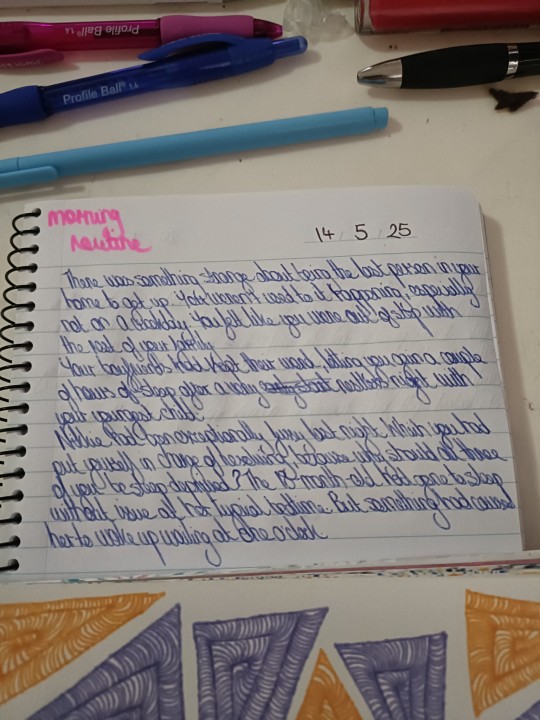 Profile Ball 1.4
Profile Ball 1.4
morning
routine
14 / 5 / 25
There was something strange about being the last person in your
home to get up. You weren't used to it happening, especially
not on a weekday. You felt like you were out of step with
the rest of your family.
Your boyfriends had kept their word, letting you gain a couple
of hours of sleep after a very restless night with
your youngest child.
had been exceptionally fussy last night. Which you had
put yourself in charge of resolving, because why should all three
of you be sleep deprived? The 10-month-old had gone to sleep
without issue at her typical bedtime. But something had caused
her to wake up wailing at one o'clock.